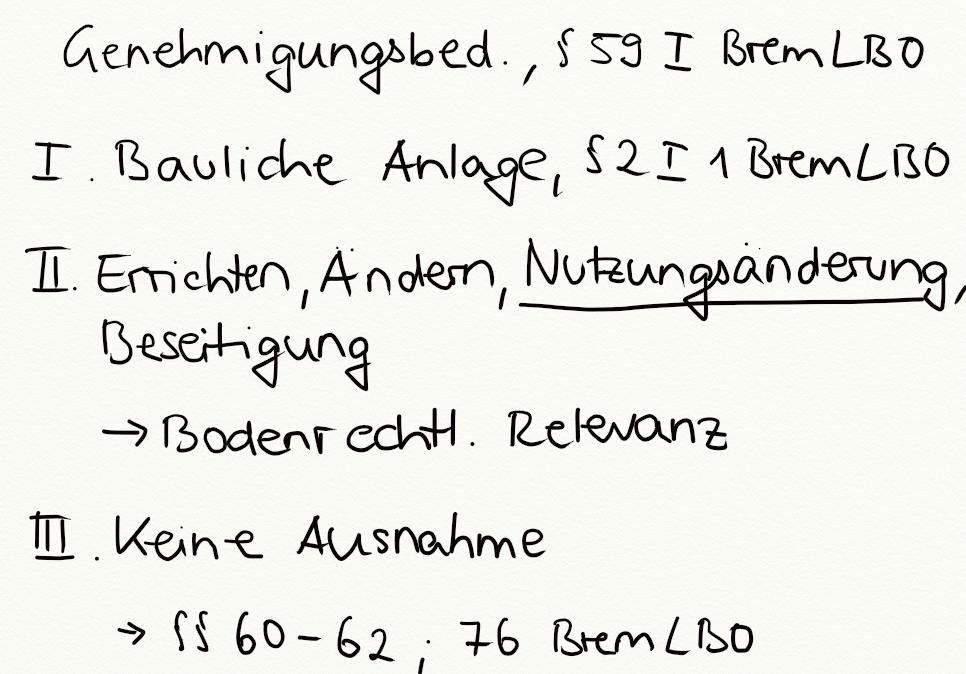 Genehmigungsbed., § 59 I BremLBO
I. Bauliche Anlage, § 2 I 1 BremLBO
II. Errichten, Ändern, Nutzungsänderung,
Beseitigung
→ Bodenrechtl. Relevanz
III. Keine Ausnahme
→ §§ 60-62; 76 BremLBO